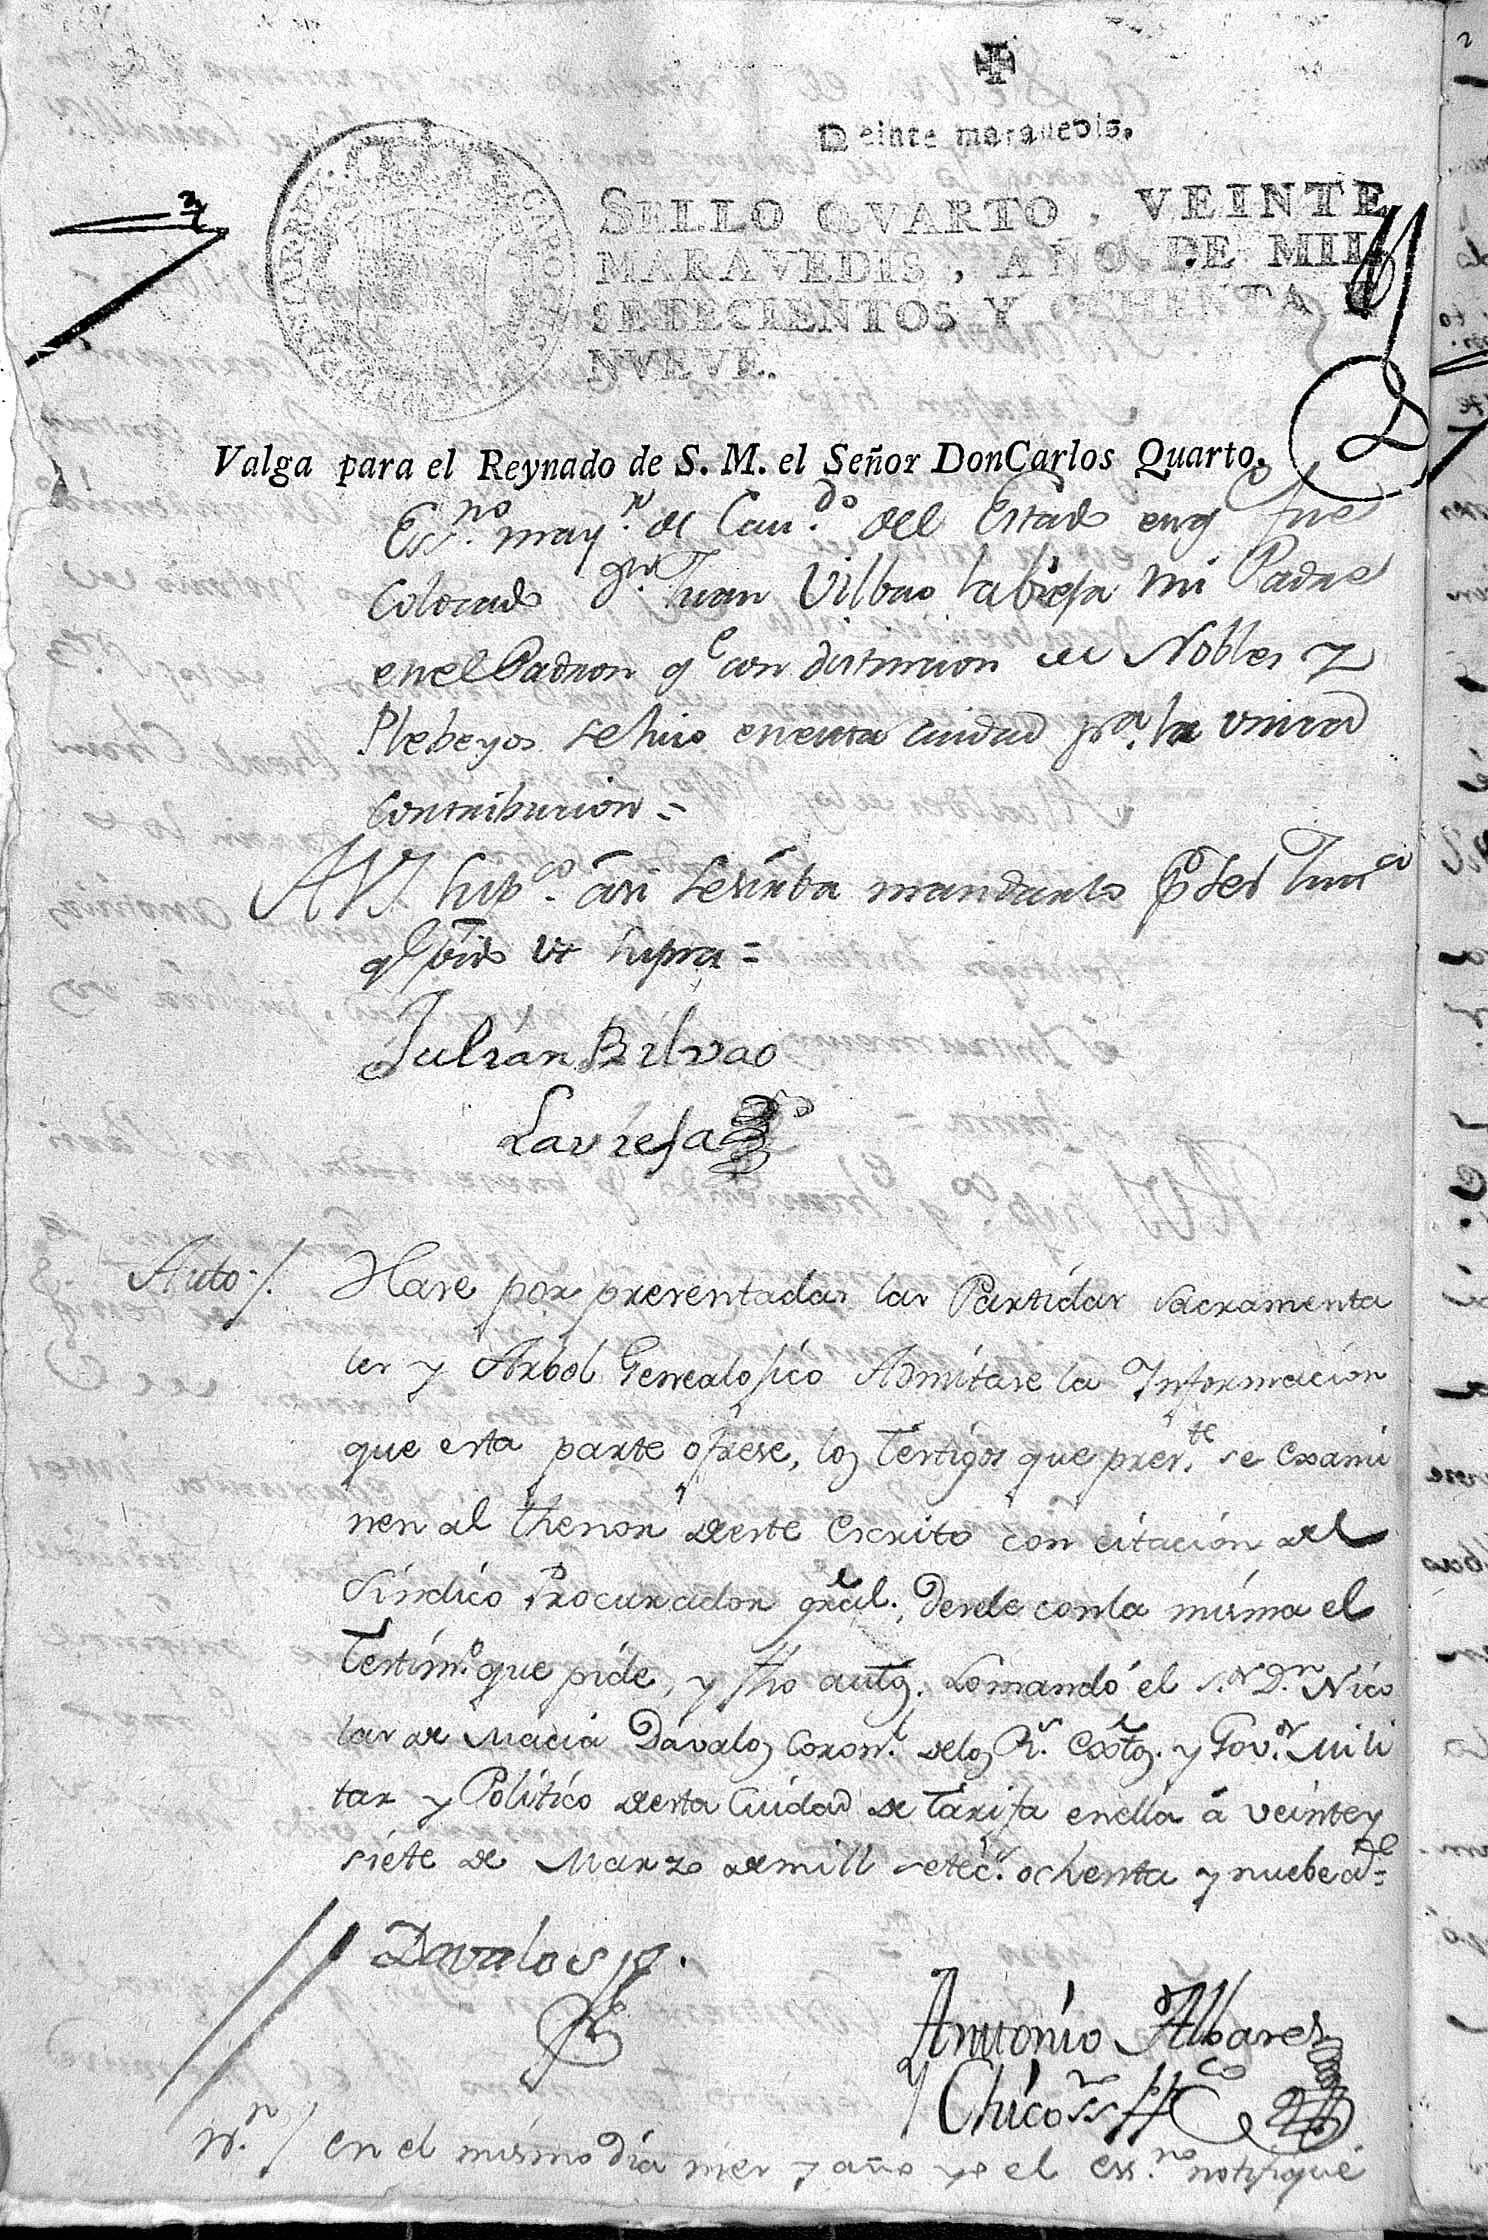 Veinte maravedis.
SELLO QVARTO, VEINTE
MARAVEDIS, AÑO DE MIL
SETECIENTOS Y OCHENTA Y
NVEVE.
Valga para el Reynado de S. M. el Señor DonCarlos Quarto.
Ess.no may.r de Cav.do del Estado en q fue
Colocado Juan Vilbao Labiesa mi Padre
en el Padron q.e con distincion de Nobles y
Plebeyos se hizo en esta ciudad p.ra la unica
Contribucion =
A V.S. sup.co asi se sirba mandarlo p.r ser Just.a
q.e pido ut supra =
Julian Bilvao
Laviesa
Auto /. Hase por presentadas las Partidas Sacramenta
les y Arbol Genealogico Admitase la Informacion
que esta parte ofrese, los Testigos que pres.te se Exami
nen al thenor deeste Escrito con citacion del
Sindico Procurador gral. Desele con la misma el
Testim.o que pide, y fho autos. Lo mandó el S.or D.n Nico
las de Macia Davalos Coron.l delos R.s Extos. y Gov.or Mili
tar y Politico desta Ciudad de Tarifa en ella á veinte y
siete de Marzo demill setec.s ochenta y nuebe a.s =
Davalos
Antonio Albares
y Chico
N.n / en el mismo Dia mes y año yo el ess.no notifiqué